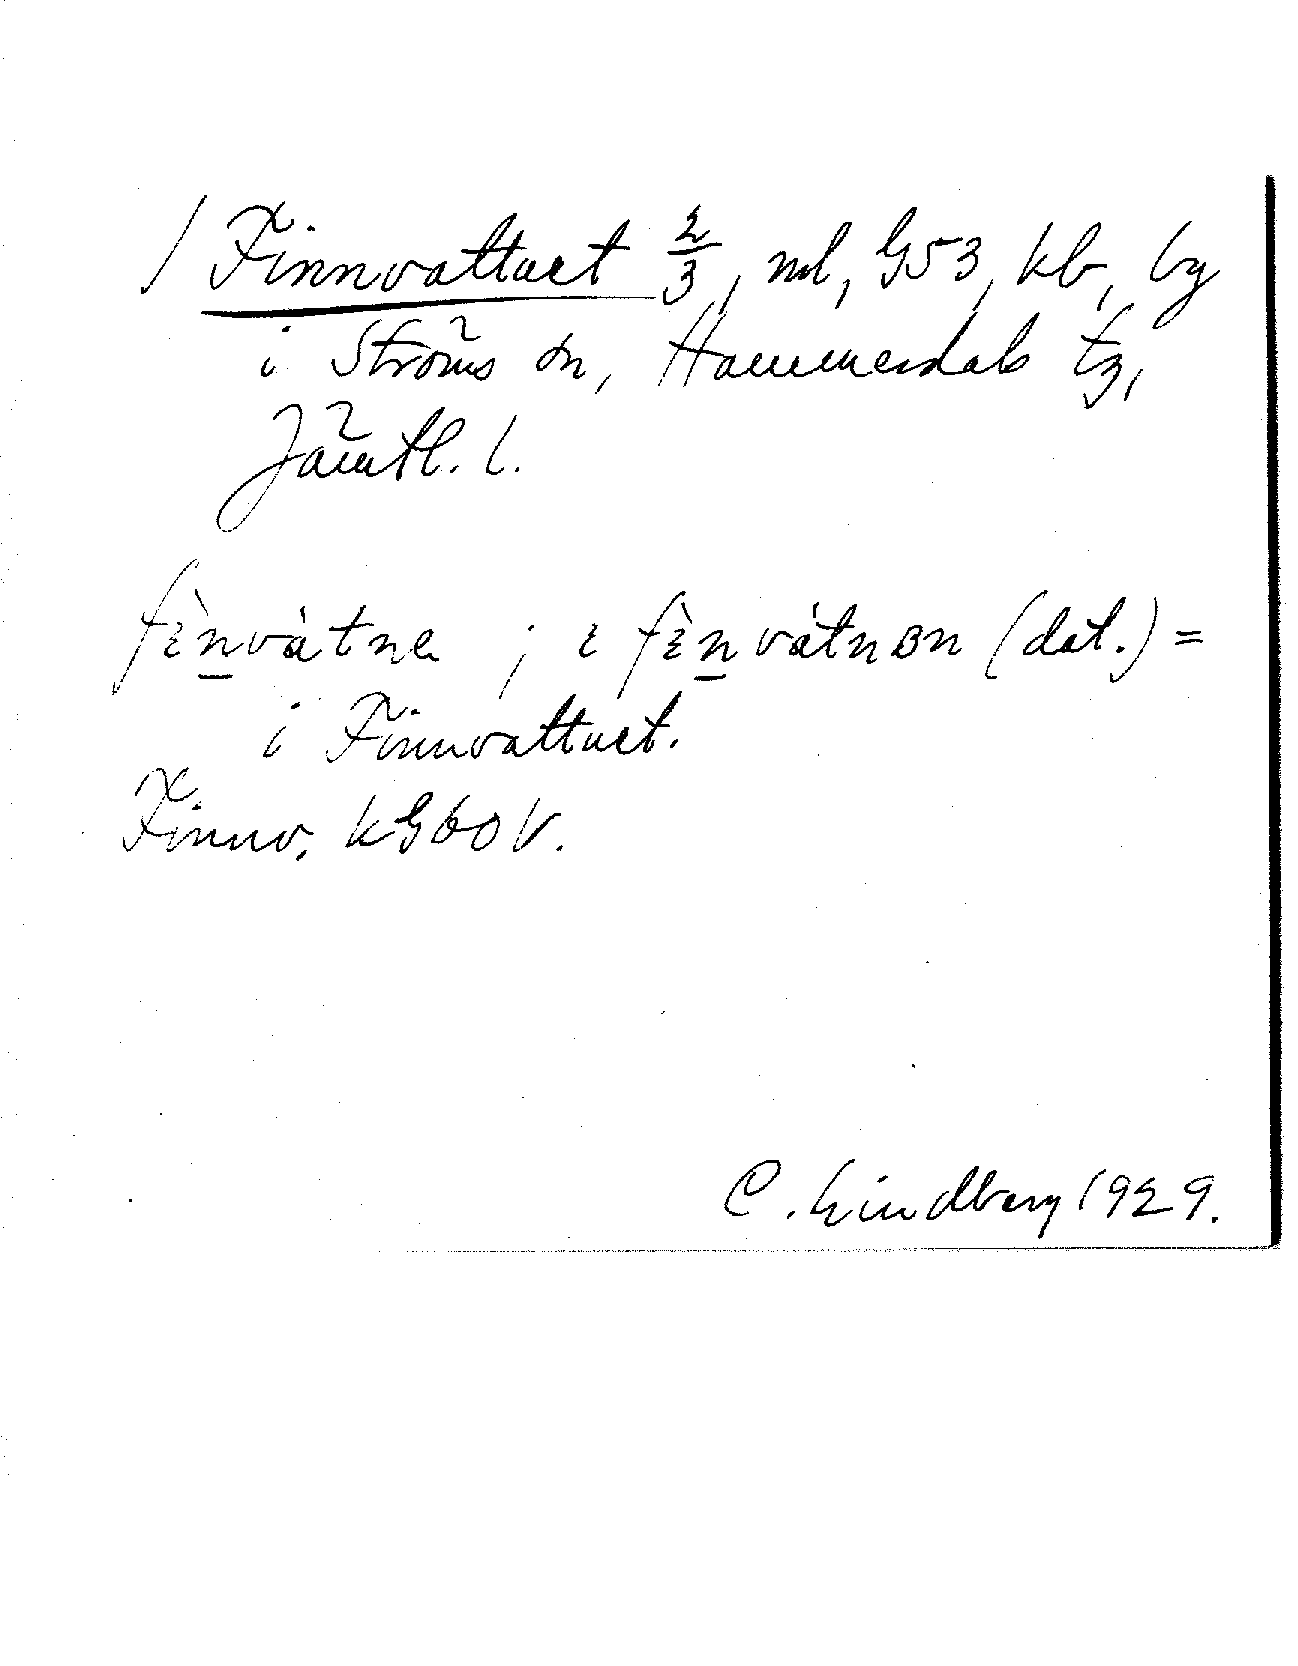 / Finnvattnet 2/3, ml, G53, kb, by
i Ströms sn, Hammerdals tg,
Jämtl. l.
fìnvàtnə ; ɩ fìnvátnɞn (dat.) =
i Finnvattnet.
Finnv. kG60V.
C. Lindberg 1929.